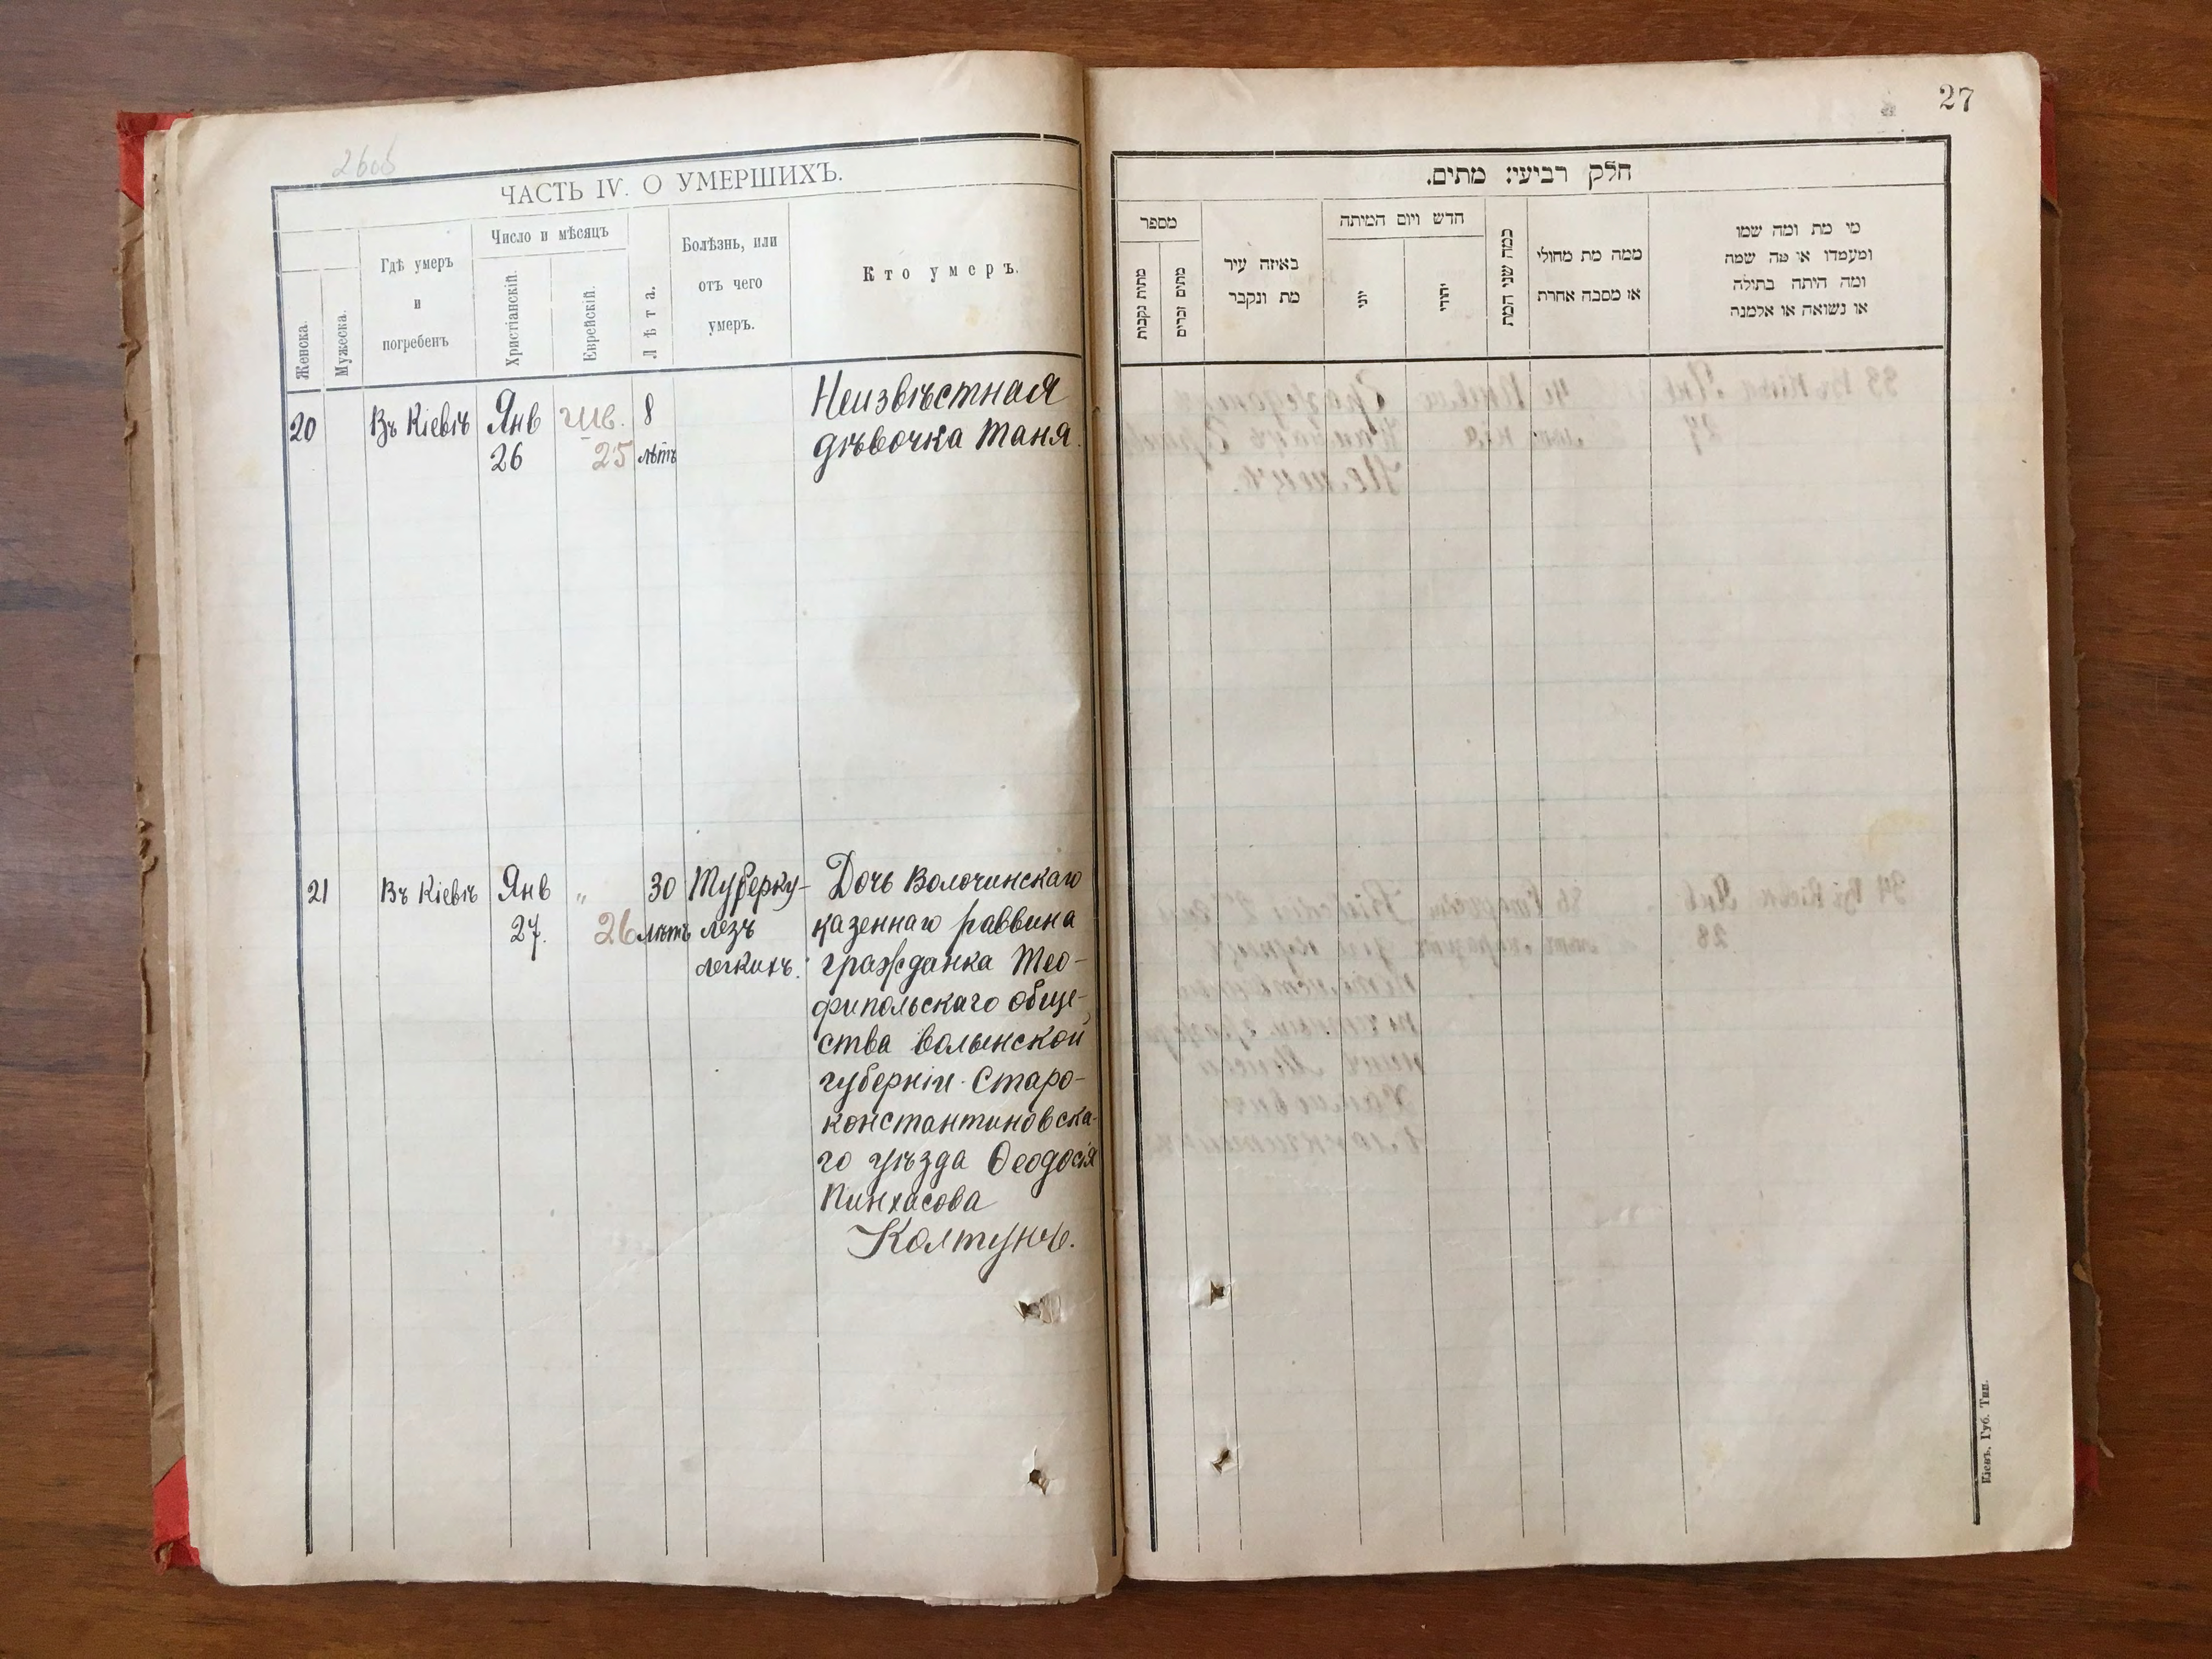 26об
ЧАСТЬ IV. О УМЕРШИХЪ.
Женска.
Мужеска.
Гдѣ умеръ
и
погребенъ
Число и мѣсяцъ
Христіанскій.
Еврейскій.
Лѣта.
Болѣзнь, или
отъ чего
умеръ.
Кто умеръ.
20 Въ Кіевѣ Янв 8 Неизвѣстная
26 25 лѣтъ дѣвочка Таня.
21 Въ Кіевѣ Янв „ 30 Туберку- Дочь Волочинскаго
27. 26 лѣтъ лезъ казеннаго раввина
легкихъ. гражданка Тео-
фипольскаго обще-
ства Волынской
губерніи Старо-
константиновска-
го уѣзда Ѳеодосія
Пинхасова
Колтунъ.
27
חלק רביעי: מתים.
מספר
מתות נקבות
מתים זכרים
באיזה עיר
מת ונקבר
חדש ויום המיתה
יוני
יהודי
כמה שני המת
ממה מת מחולי
או מסבה אחרת
מי מת ומה שמו
ומעמדו או מה שמה
ומה היתה בתולה
או נשואה או אלמנה
Кіевъ, Губ. Тип.